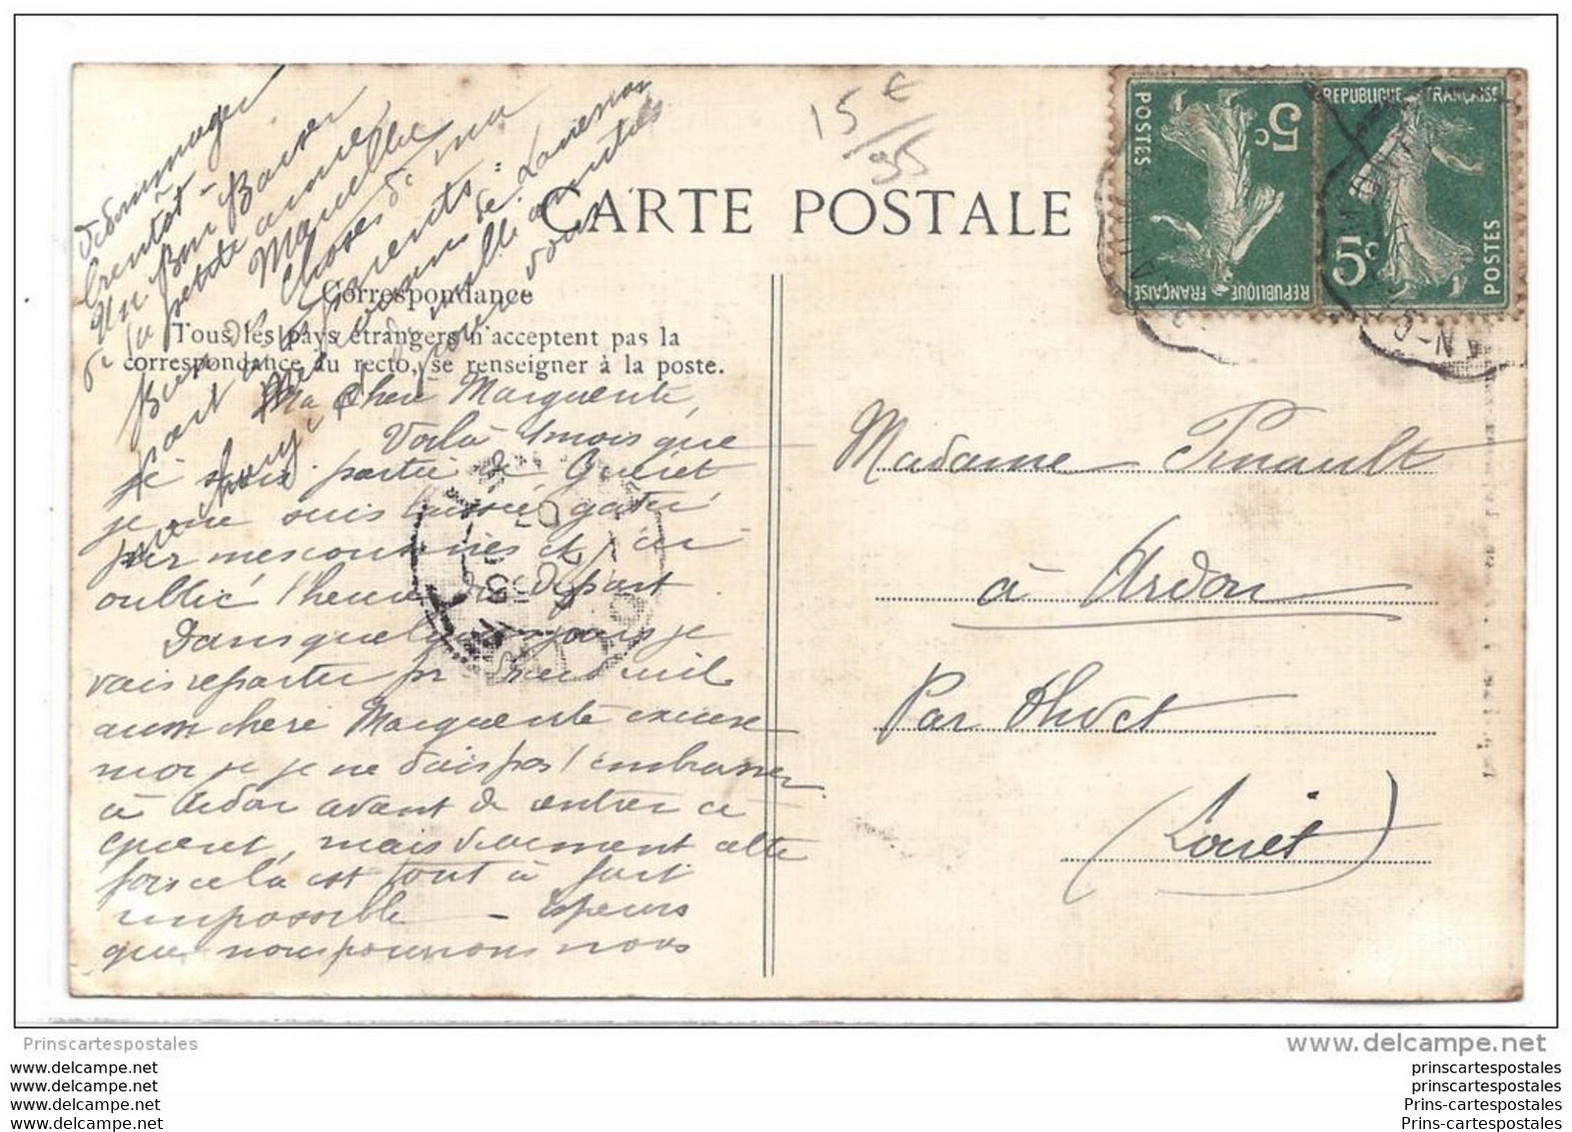 15 €
/35
CARTE POSTALE
5c POSTES REPUBLIQUE FRANÇAISE
REPUBLIQUE FRANÇAISE 5c POSTES
Correspondance
Tous les pays étrangers n'acceptent pas la
correspondance au recto, se renseigner à la poste.
Ma chère Marguerite,
Voilà 1 mois que
je suis partie de Guéret
je me suis laissée gâter
par mes cousines et j'ai
oublié l'heure du départ
Dans quelques jours je
vais repartir pr
aussi chère Marguerite excuse
moi je ne vais pas t'embrasser
à Ardon avant de rentrer à
Guéret, mais vraiment cette
fois cela est tout à fait
impossible — Espérons
que nous pourrons nous
dédommager
bientôt —
Un Bon Baiser
de ta petite amie
Marcelle
Bien des choses de ma
part à tes parents =
mille amitiés
pour vous
Madame Pinault
à Ardon
Par Olivet
(Loiret)
Prinscartespostales
www.delcampe.net
www.delcampe.net
www.delcampe.net
www.delcampe.net
www.delcampe.net
prinscartespostales
prinscartespostales
Prins-cartespostales
Prins-cartespostales